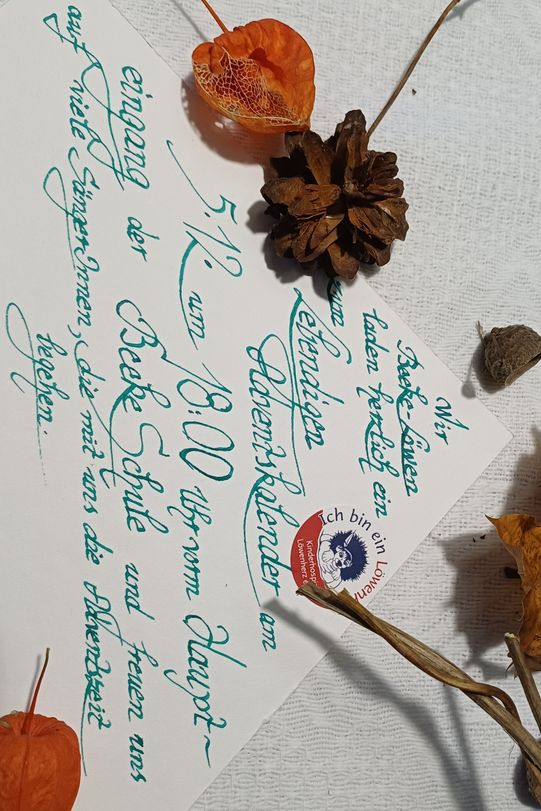 Wir
Beeke-Löwen
laden herzlich ein
zum
Lebendigen
Adventskalender am
5.12. um 18.00 Uhr vorm Haupt-
eingang der Beeke Schule und freuen uns
auf viele Sänger:Innen, die mit uns die Adventszeit
begehen.
Ich bin ein Löwen
Kinderhosp
Löwenherz e.